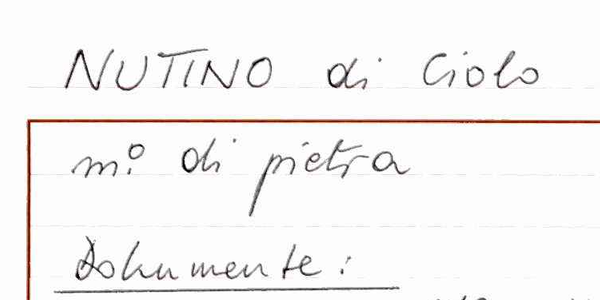 NUTINO di Ciolo
m.o di pietra
Dokumente: